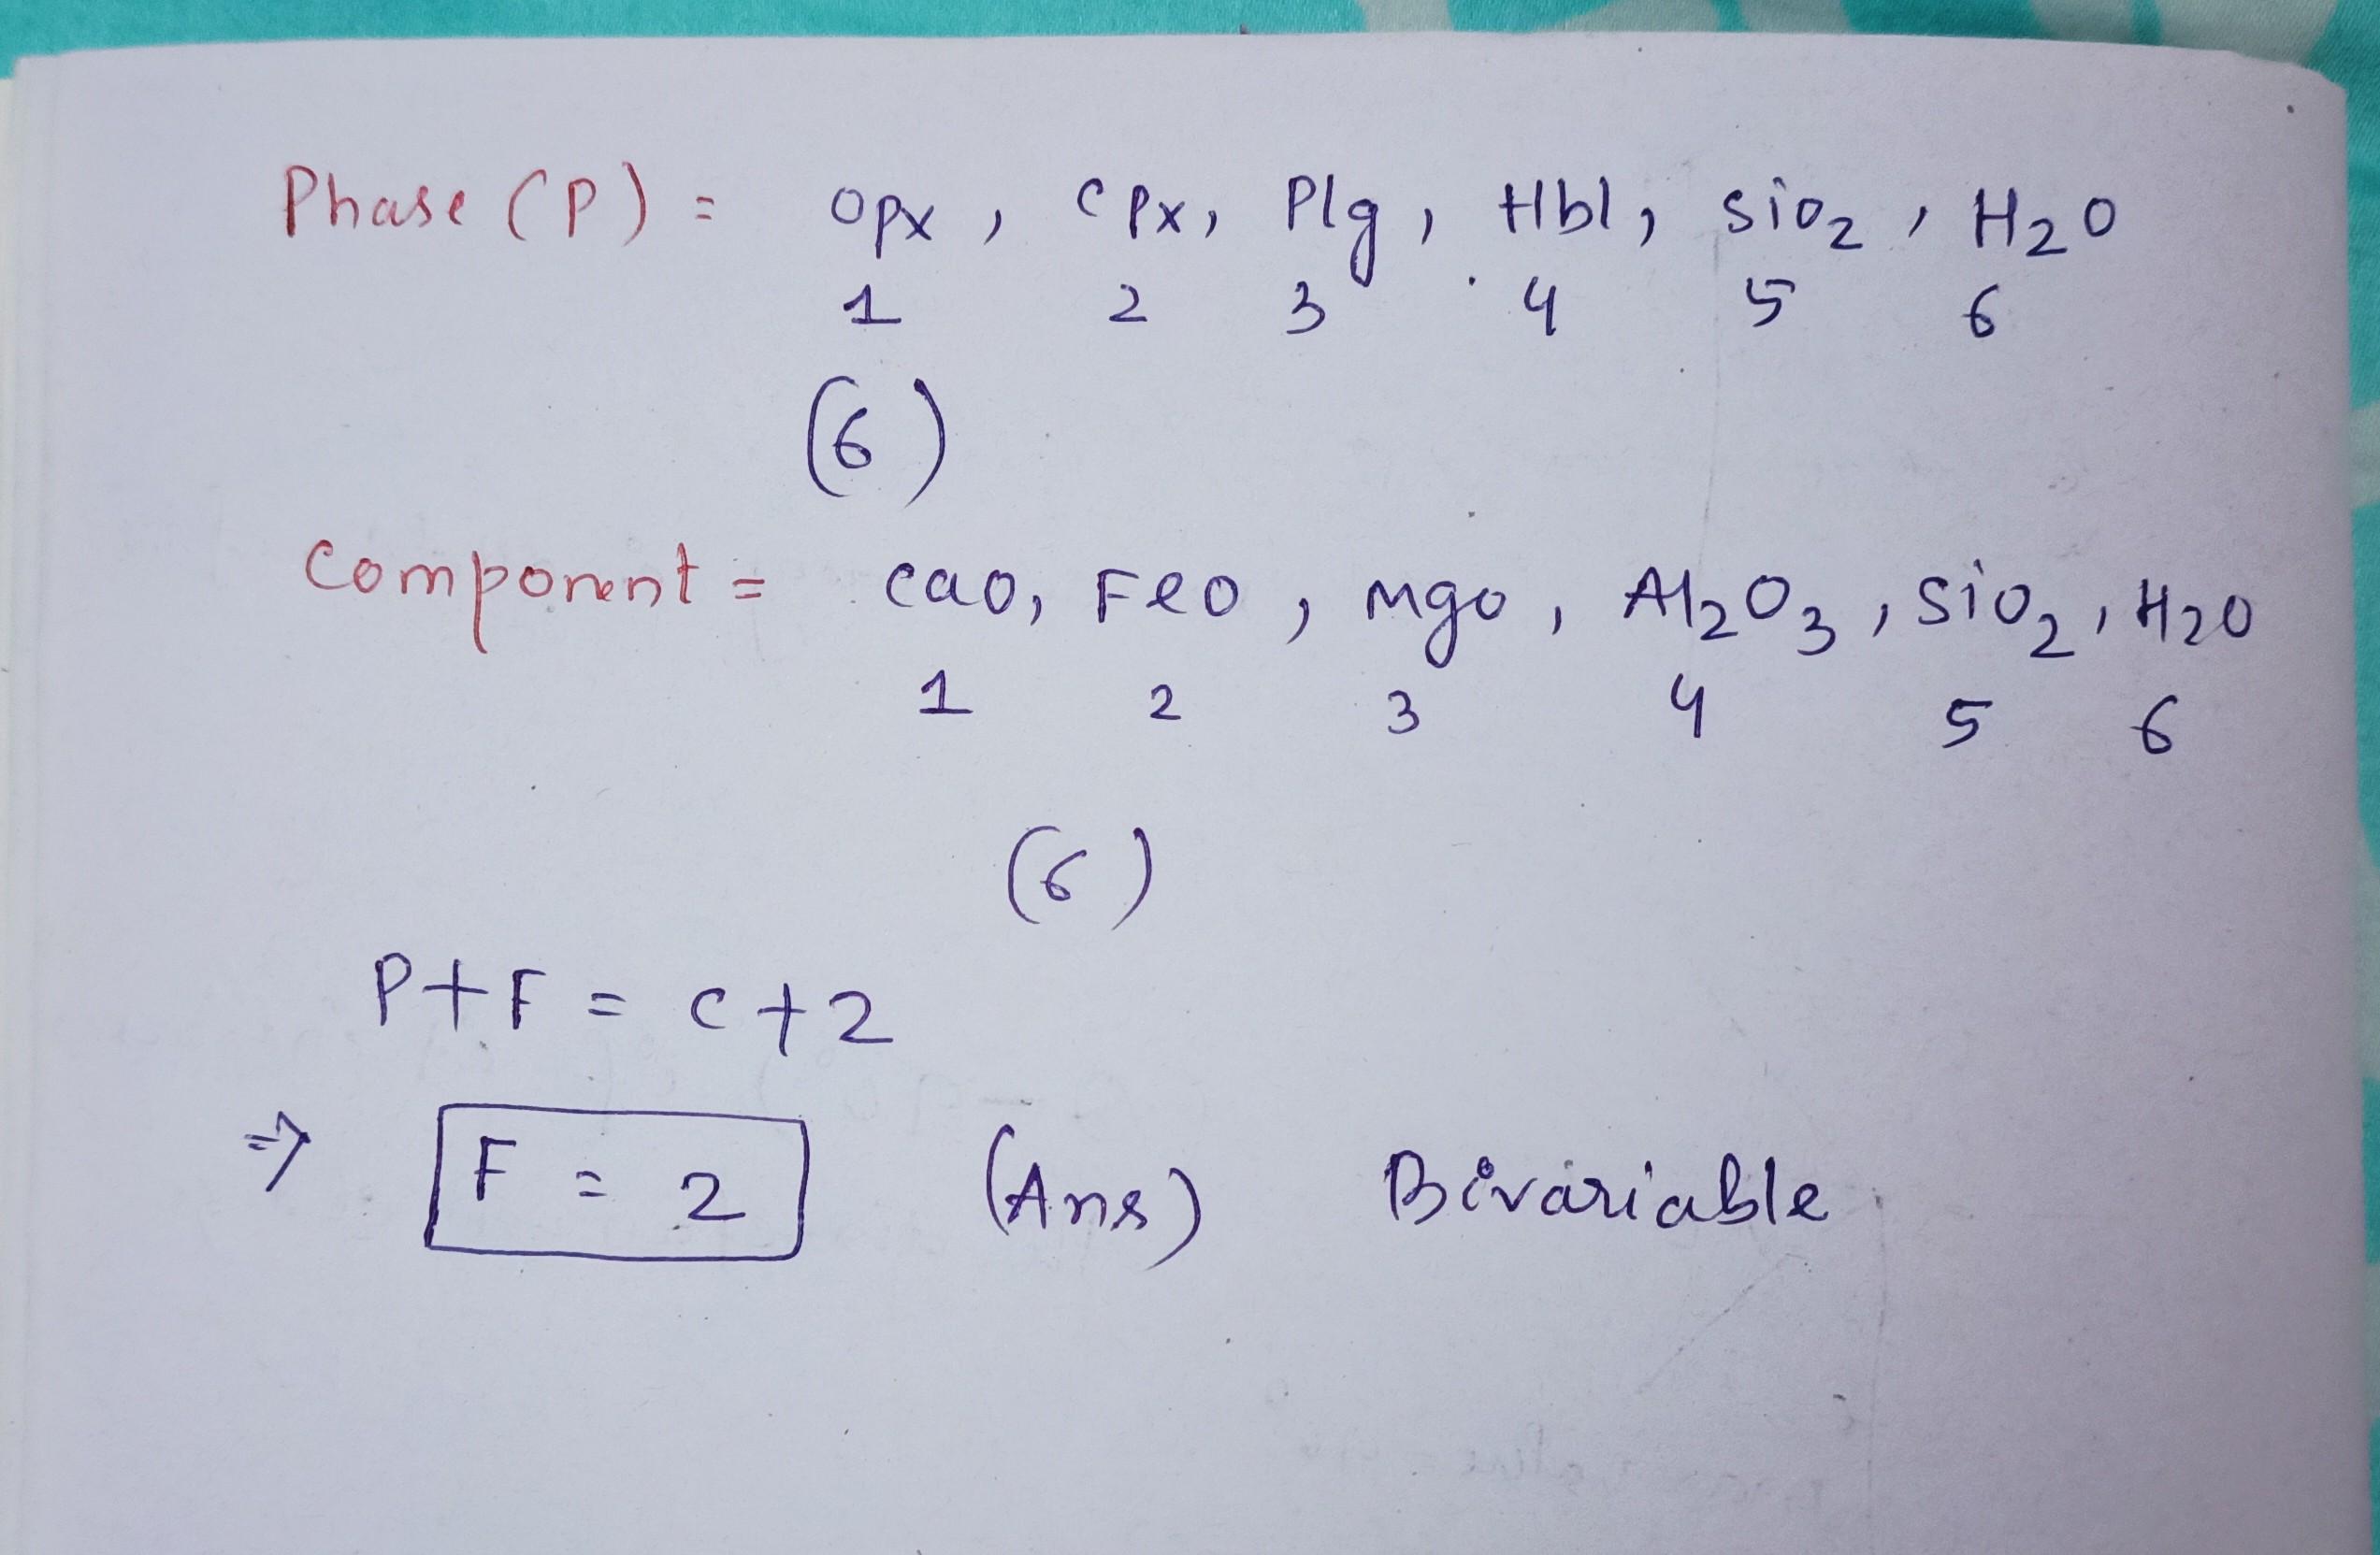 Phase (P) = opx, cpx, Plg, Hbl, SiO2, H2O
1 2 3 4 5 6
(6)
Component = cao, Feo, Mgo, Al2O3, SiO2, H2O
1 2 3 4 5 6
(6)
P+F = c+2
⇒ F = 2 (Ans) Bivariable